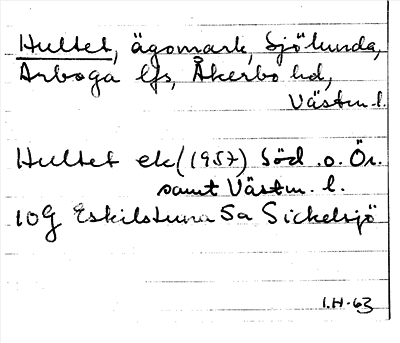 Hultet, ägomark, Sjölunda,
Arboga lfs, Åkerbo hd,
Västm. l.
Hultet ek (1957) Söd. o. Ör.
samt Västm. l.
10g Eskilstuna 5a Sickelsjö
I.H-63